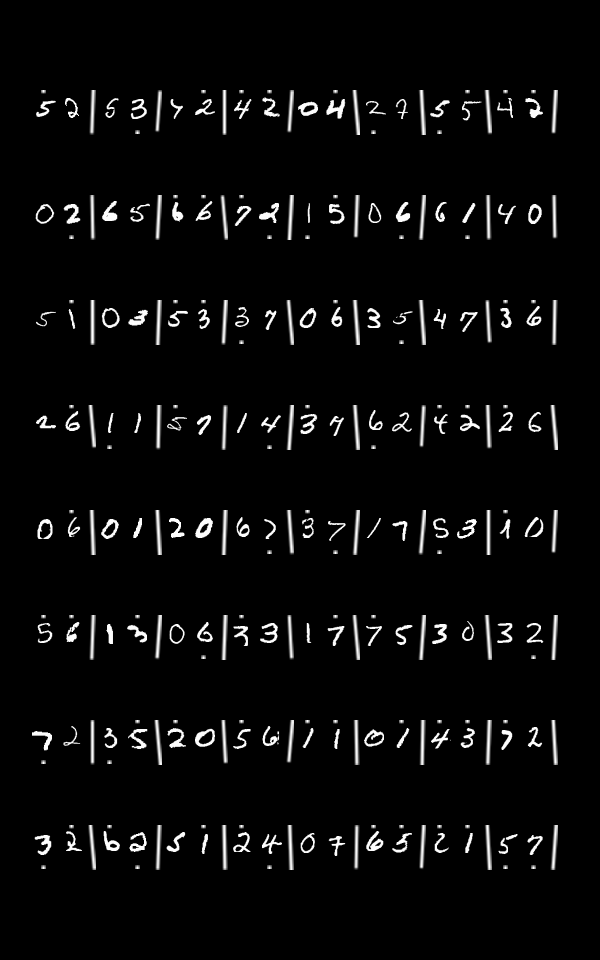 5 2 | 5 3 | 7 2 | 4 2 | 0 4 | 2 7 | 5 5 | 4 2 |
0 2 | 6 5 | 6 6 | 7 2 | 1 5 | 0 6 | 6 1 | 4 0 |
5 1 | 0 3 | 5 3 | 3 7 | 0 6 | 3 5 | 4 7 | 3 6 |
2 6 | 1 1 | 5 7 | 1 4 | 3 7 | 6 2 | 4 2 | 2 6 |
0 6 | 0 1 | 2 0 | 6 7 | 3 7 | 1 7 | 5 3 | 1 0 |
5 6 | 1 3 | 0 6 | 3 3 | 1 7 | 7 5 | 3 0 | 3 2 |
7 2 | 3 5 | 2 0 | 5 6 | 1 1 | 0 1 | 4 3 | 7 2 |
3 2 | 6 2 | 5 1 | 2 4 | 0 7 | 6 5 | 2 1 | 5 7 |